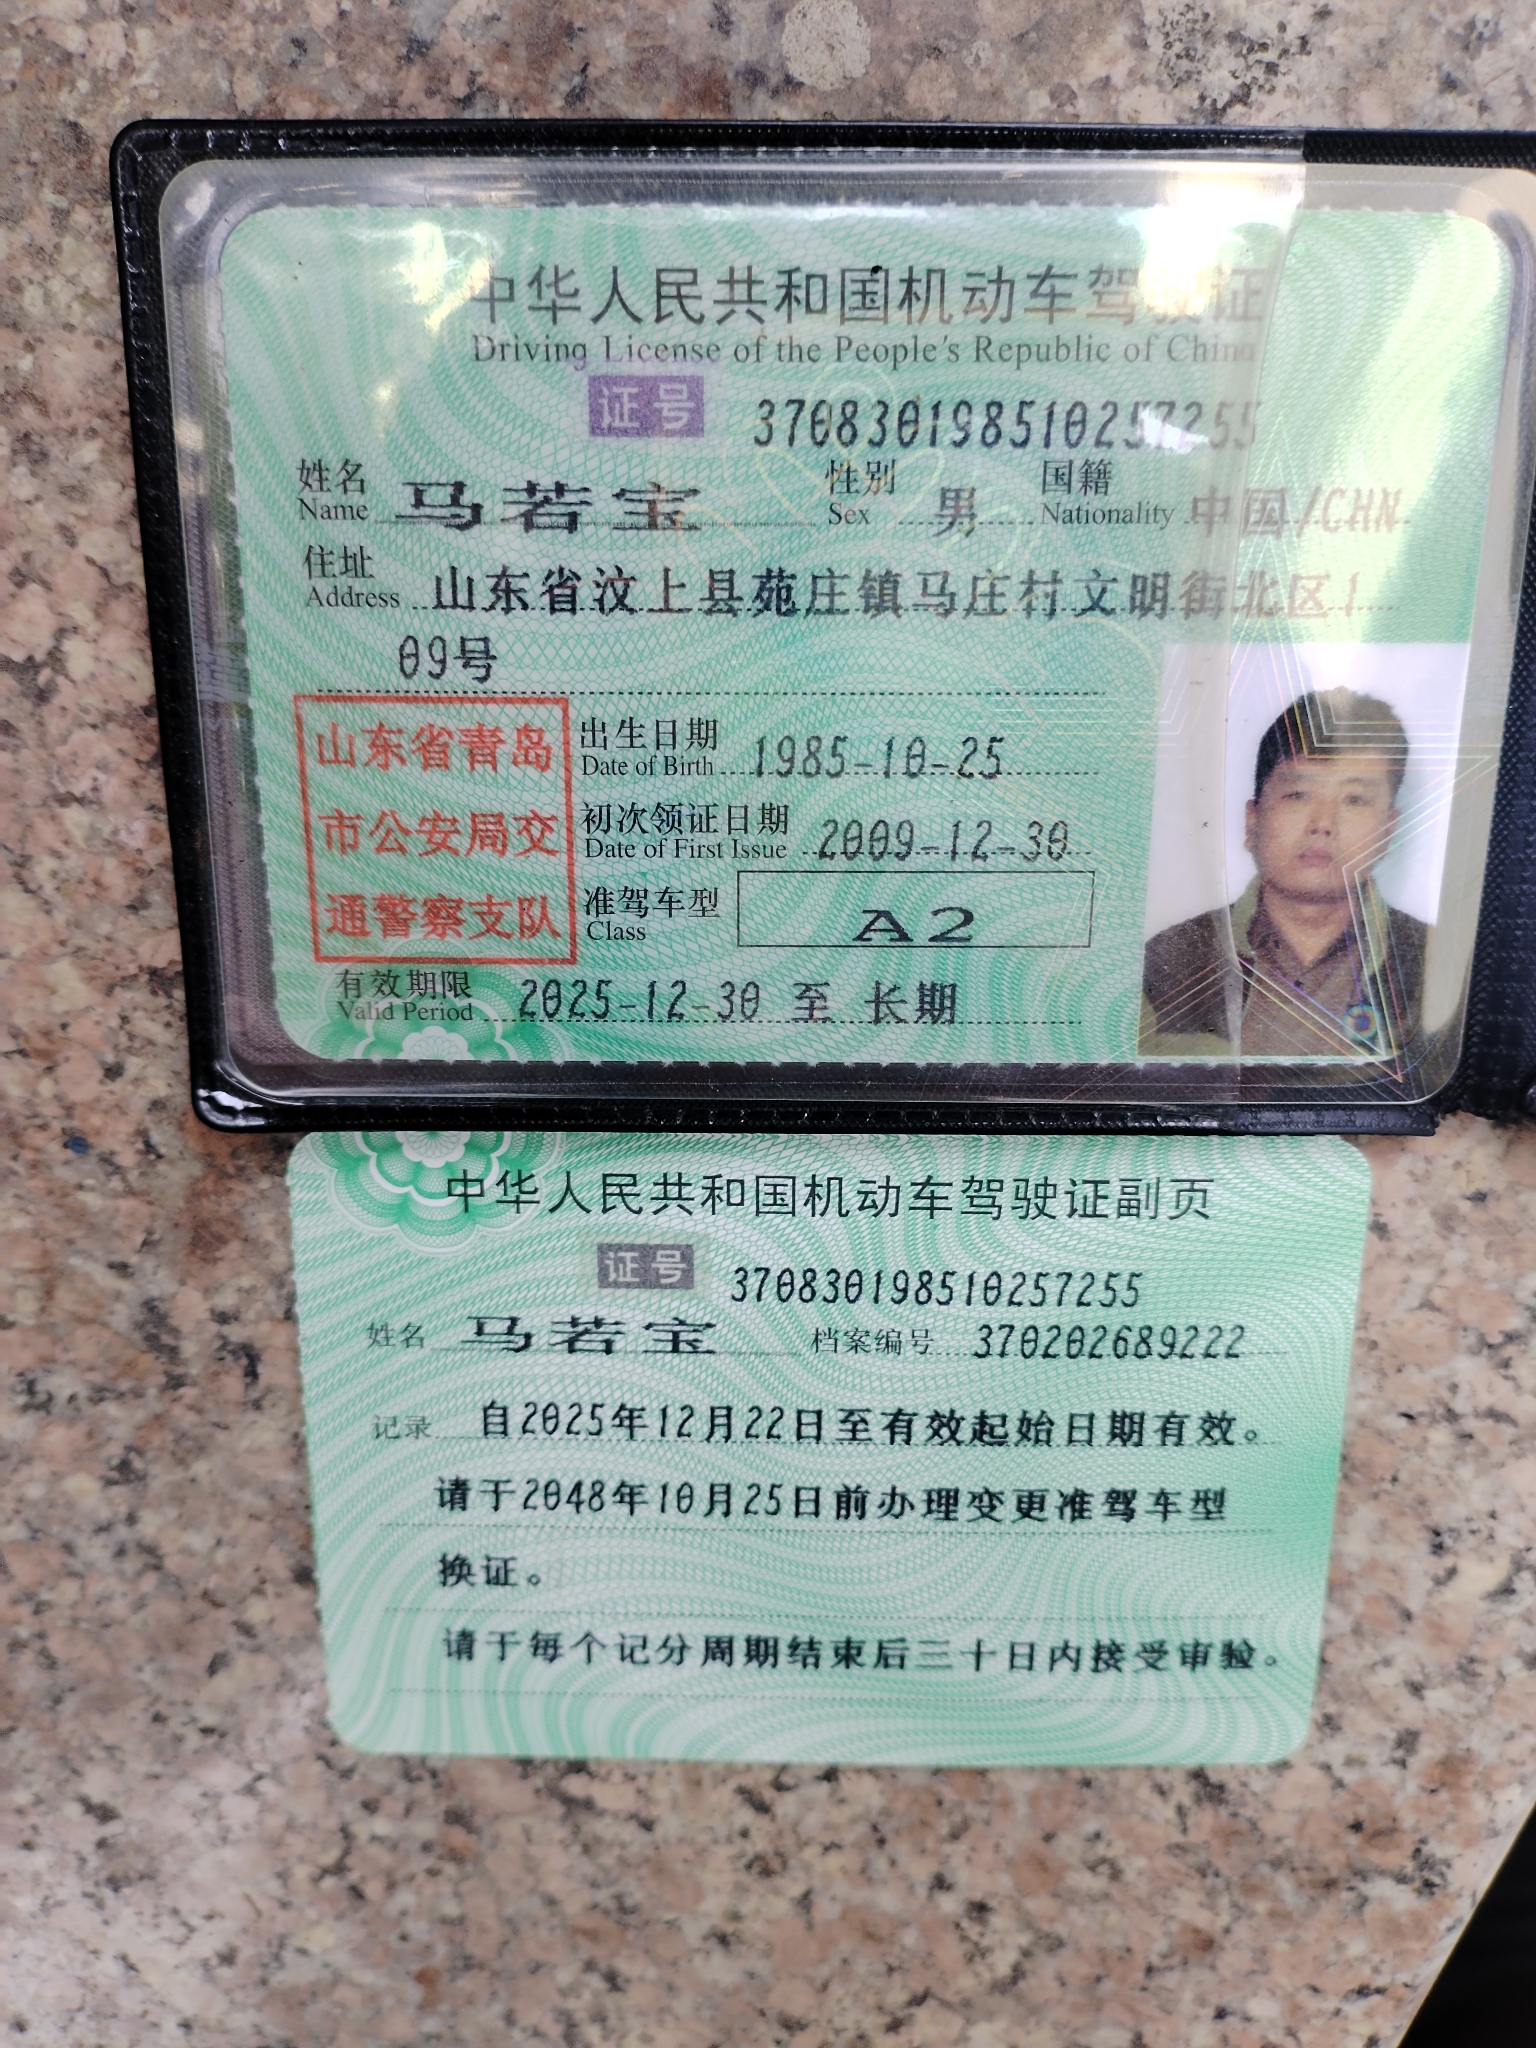 中华人民共和国机动车驾驶证
Driving License of the People's Republic of China
证号 370830198510257255
姓名 Name 马若宝 性别 Sex 男 国籍 Nationality 中国/CHN
住址 Address 山东省汶上县苑庄镇马庄村文明街北区1
09号
山东省青岛
市公安局交
通警察支队
出生日期 Date of Birth 1985-10-25
初次领证日期 Date of First Issue 2009-12-30
准驾车型 Class A2
有效期限 Valid Period 2025-12-30 至 长期
中华人民共和国机动车驾驶证副页
证号 370830198510257255
姓名 马若宝 档案编号 370202689222
记录 自2025年12月22日至有效起始日期有效。
请于2048年10月25日前办理变更准驾车型
换证。
请于每个记分周期结束后三十日内接受审验。